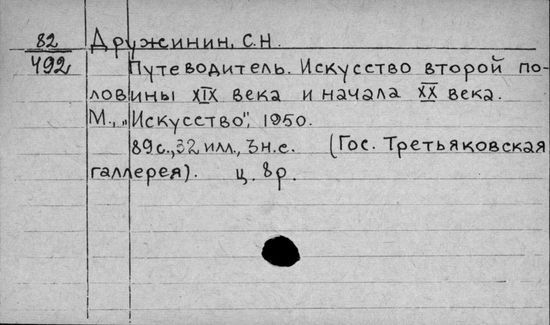 82 Дружинин, С.Н.
492 Путеводитель. Искусство второй по-
ловины XIX века и начала XX века.
М., „Искусство", 1950.
89с., 32 илл., Ъ н.с. (Гос. Третьяковская
галлерея). ц. 8р.